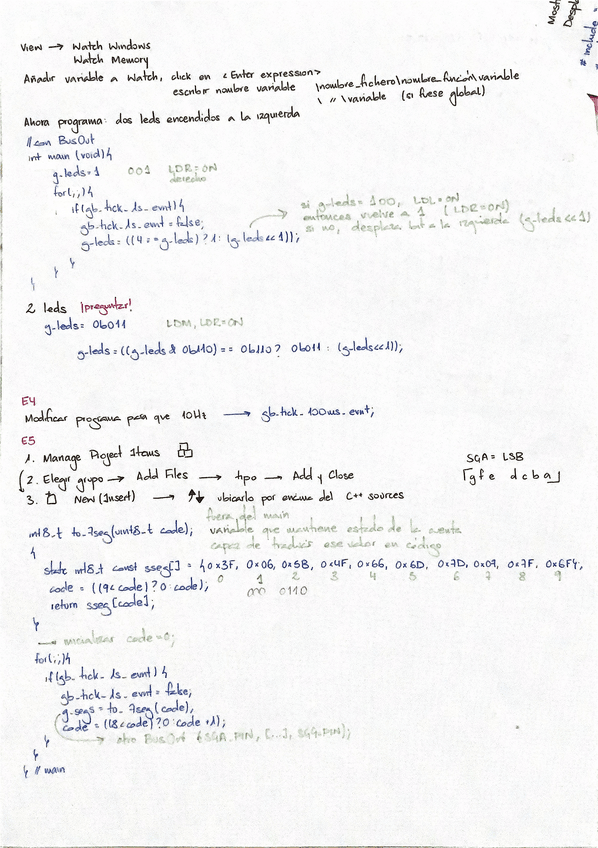 Most
Despl
# include =
View → Watch Windows
Watch Memory
Añadir variable a Watch, click en <Enter expression>
escribir nombre variable \nombre_fichero\nombre_función\variable
\ " \variable (si fuese global)
Ahora programa: dos leds encendidos a la izquierda
// con BusOut
int main (void){
g-leds=1 001 LDR=ON
derecho
for(;;){
if(gb-tick-1s-evnt){
gb-tick-1s-evnt=false;
g-leds=((4==g-leds)?1:(g-leds<<1));
si g-leds=100, LDL=ON
entonces vuelve a 1 (LDR=ON)
si no, desplaza bit a la izquierda (g-leds<<1)
}
}
}
2 leds ¡preguntar!
g-leds= 0b011 LDM, LDR=ON
g-leds=((g-leds & 0b110)== 0b110? 0b011 : (g-leds<<1));
E4
Modificar programa para que 10Hz → gb-tick-100ms-evnt;
E5
1. Manage Project Items
2. Elegir grupo → Add Files → tipo → Add y Close
3. New (Insert) → ubicarlo por encima del C++ sources
SGA = LSB
[gfe dcba]
fuera del main
int8_t to_7seg(uint8_t code); variable que mantiene estado de la cuenta
{ capaz de traducir ese valor en código
static int8_t const sseg[] = {0x3F, 0x06, 0x5B, 0x4F, 0x66, 0x6D, 0x7D, 0x07, 0x7F, 0x6F};
0 1 2 3 4 5 6 7 8 9
code = ((9<code)?0:code);
0110
return sseg[code];
}
→ inicializar code=0;
for(;;){
if(gb-tick-1s-evnt){
gb-tick-1s-evnt=false;
g-segs=to_7seg(code);
code=((8<code)?0:code+1);
→ otro BusOut (SGA_PIN, [...], SGG_PIN);
}
}
} // main